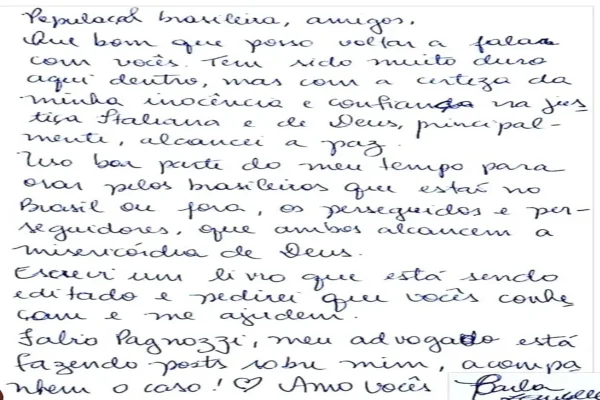 População brasileira, amigos,
Que bom que posso voltar a falar
com vocês. Tem sido muito duro
aqui dentro, mas com a certeza da
minha inocência e confiança na jus
tiça Italiana e de Deus, principal-
mente, alcancei a paz.
Uso boa parte do meu tempo para
orar pelos brasileiros que estão no
Brasil ou fora, os perseguidos e per-
seguidores, que ambos alcancem a
misericórdia de Deus.
Escrevi um livro que está sendo
editado e pedirei que vocês conhe
çam e me ajudem.
Fabio Pagnozzi, meu advogado está
fazendo posts sobre mim, acompa
nhem o caso! ♡ Amo vocês